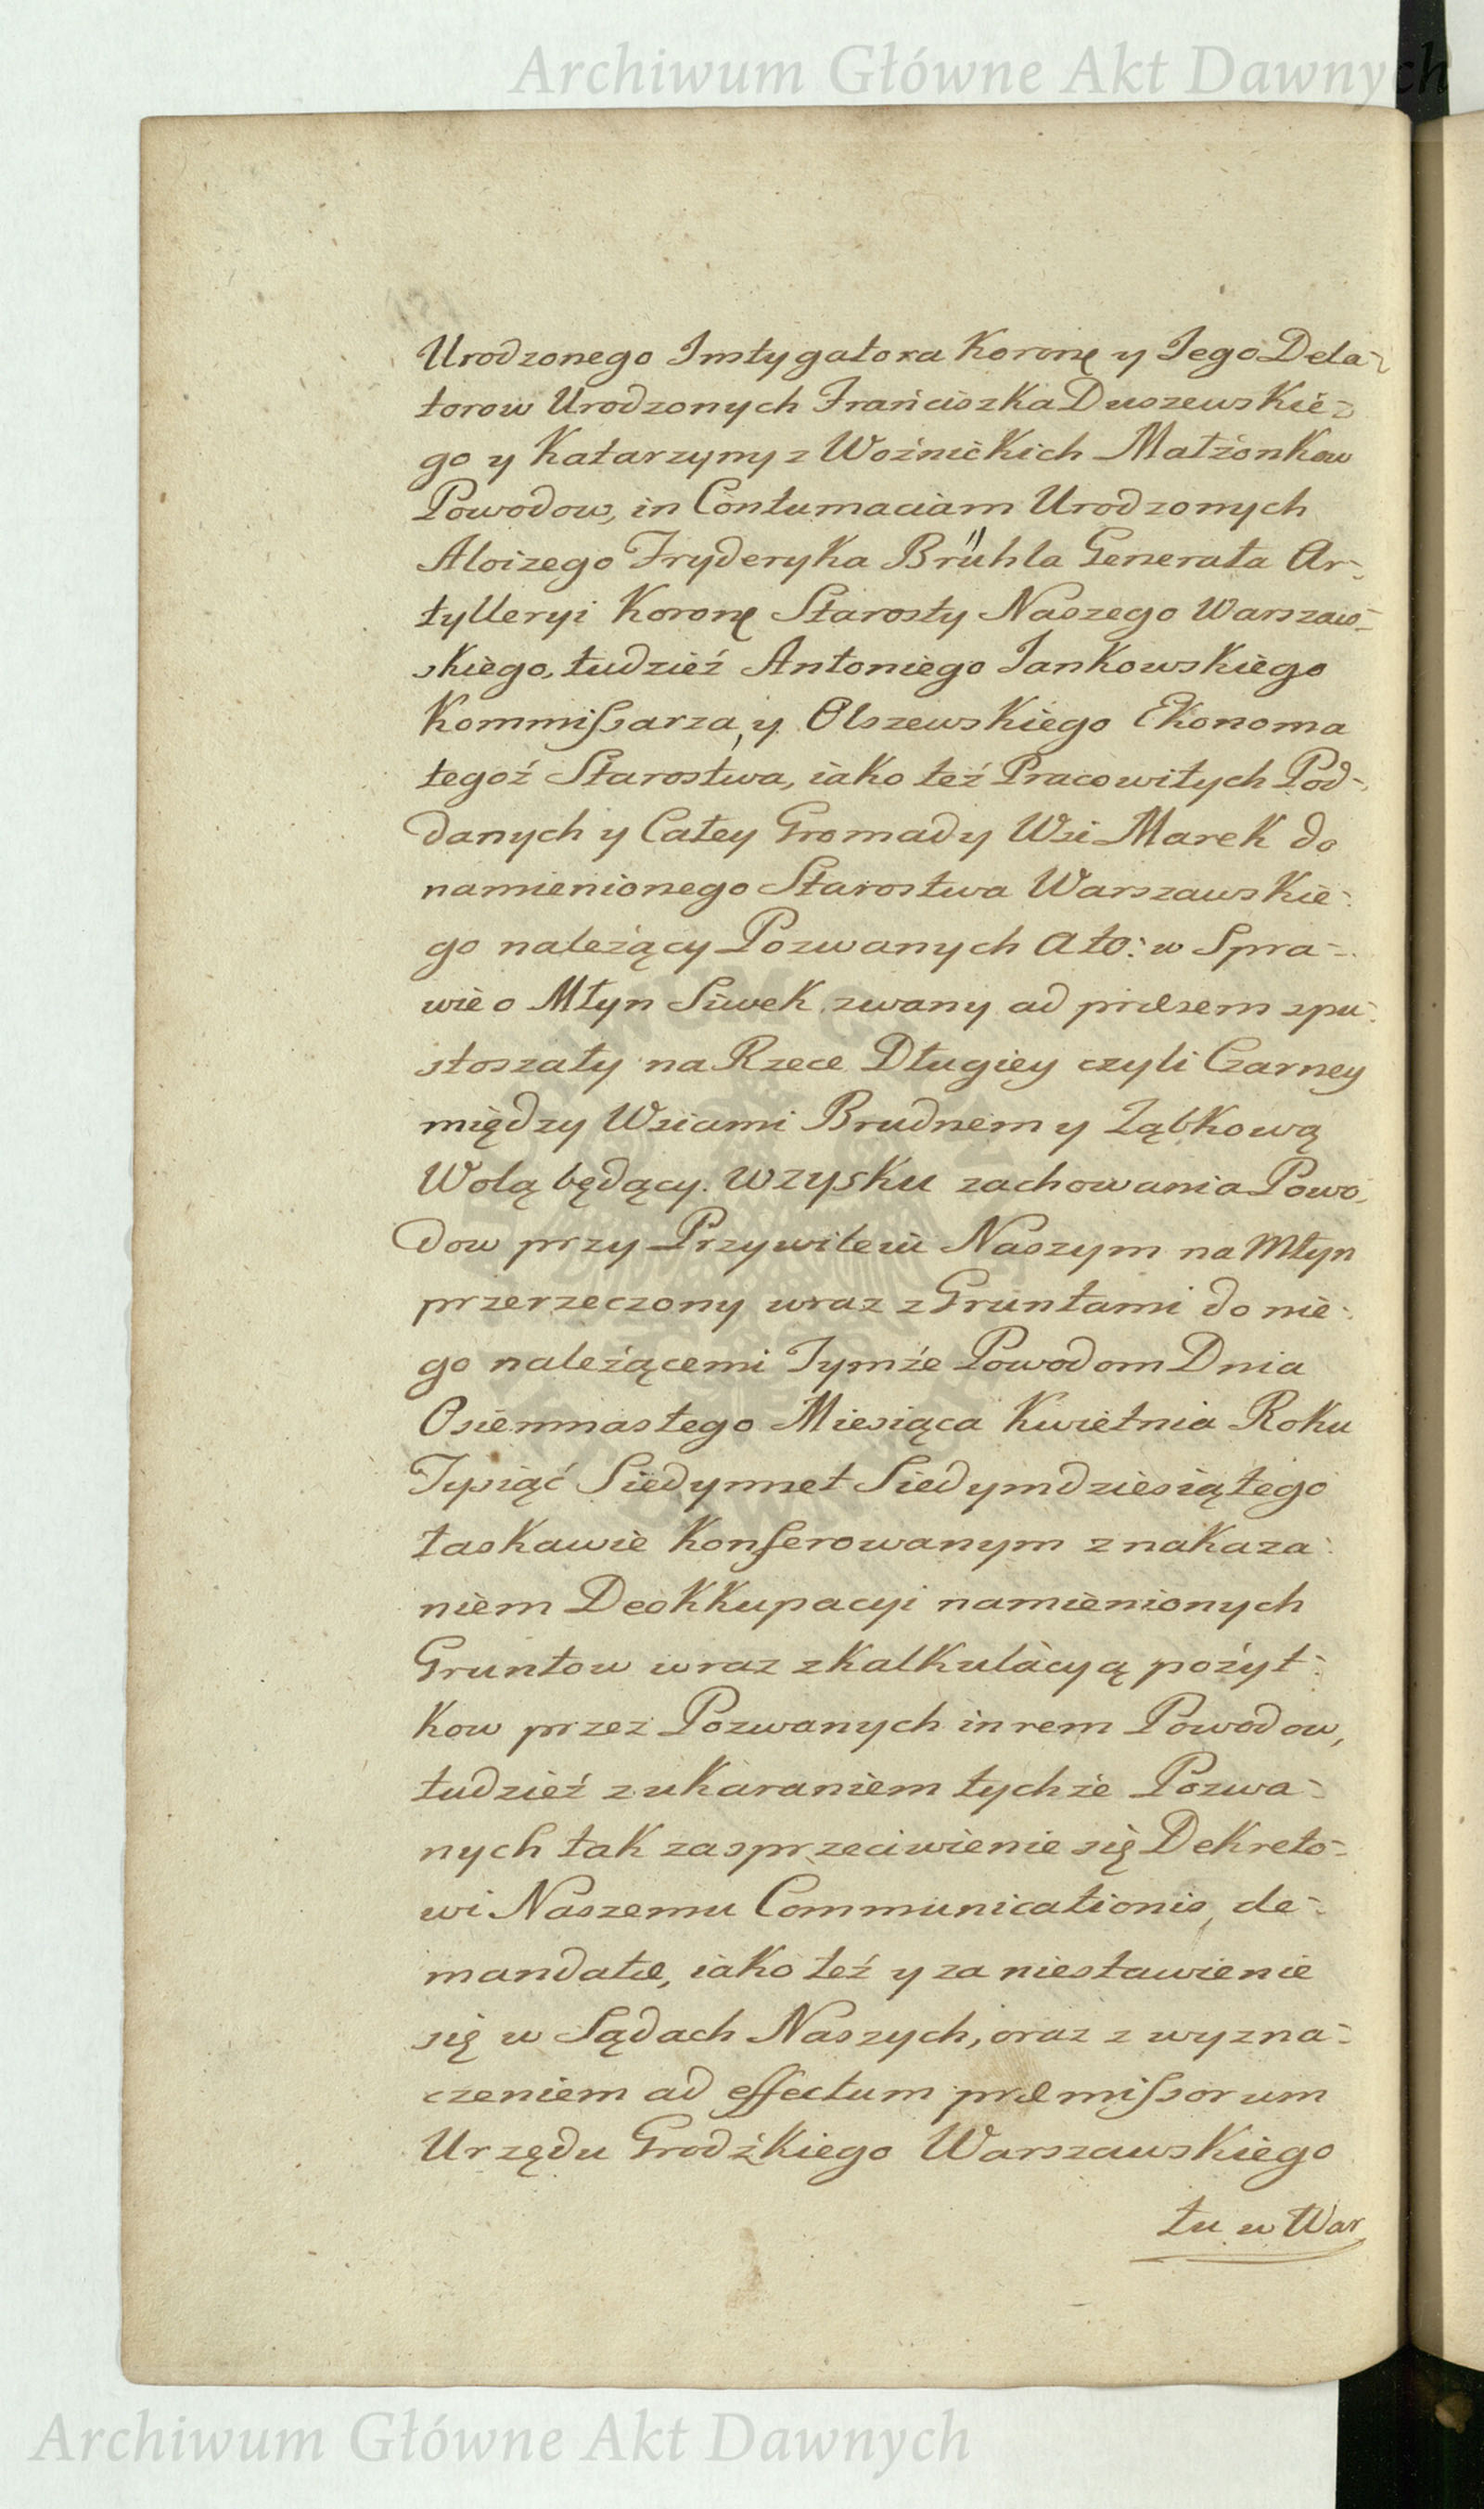 Archiwum Główne Akt Dawnych
Urodzonego Instygatora Koronę y Jego Dela-
torow Urodzonych Franciszka Duszewskie-
go y Katarzyny z Woźnickich Małżonkow
Powodow, in Contumaciam Urodzonych
Aloizego Fryderyka Brühla Generała Ar-
tylleryi Koronę Starosty Naszego Warszaw-
skiego, tudzież Antoniego Jankowskiego
Kommissarza, y Olszewskiego Ekonoma
tegoż Starostwa, iako też Pracowitych Pod-
danych y Całey Gromady Wsi Marek do
namienionego Starostwa Warszawskie-
go należący Pozwanych Ato: w Spra-
wie o Młyn Siwek zwany ad præsens spu-
stoszały na Rzece Długiey czyli Czarney
między Wsiami Brudnem y Ząbkową
Wolą będący. Wzysku zachowania Powo-
dow przy Przywileiu Naszym na Młyn
przerzeczony wraz z Gruntami do nie-
go należącemi Tymże Powodom Dnia
Osiemnastego Miesiąca Kwietnia Roku
Tysiąć Siedymset Siedymdziesiątego
łaskawie Konferowanym z nakaza-
niem Deokkupacyi namienionych
Gruntow wraz z Kalkulacyą pożyt-
kow przez Pozwanych in rem Powodow,
tudzież z ukaraniem tychże Pozwa-
nych tak za sprzeciwienie się Dekreto-
wi Naszemu Communicationis, de-
mandatæ, iako też y za niestawienie
się w Sądach Naszych, oraz z wyzna-
czeniem ad effectum præmissorum
Urzędu Grodzkiego Warszawskiego
tu w War
Archiwum Główne Akt Dawnych